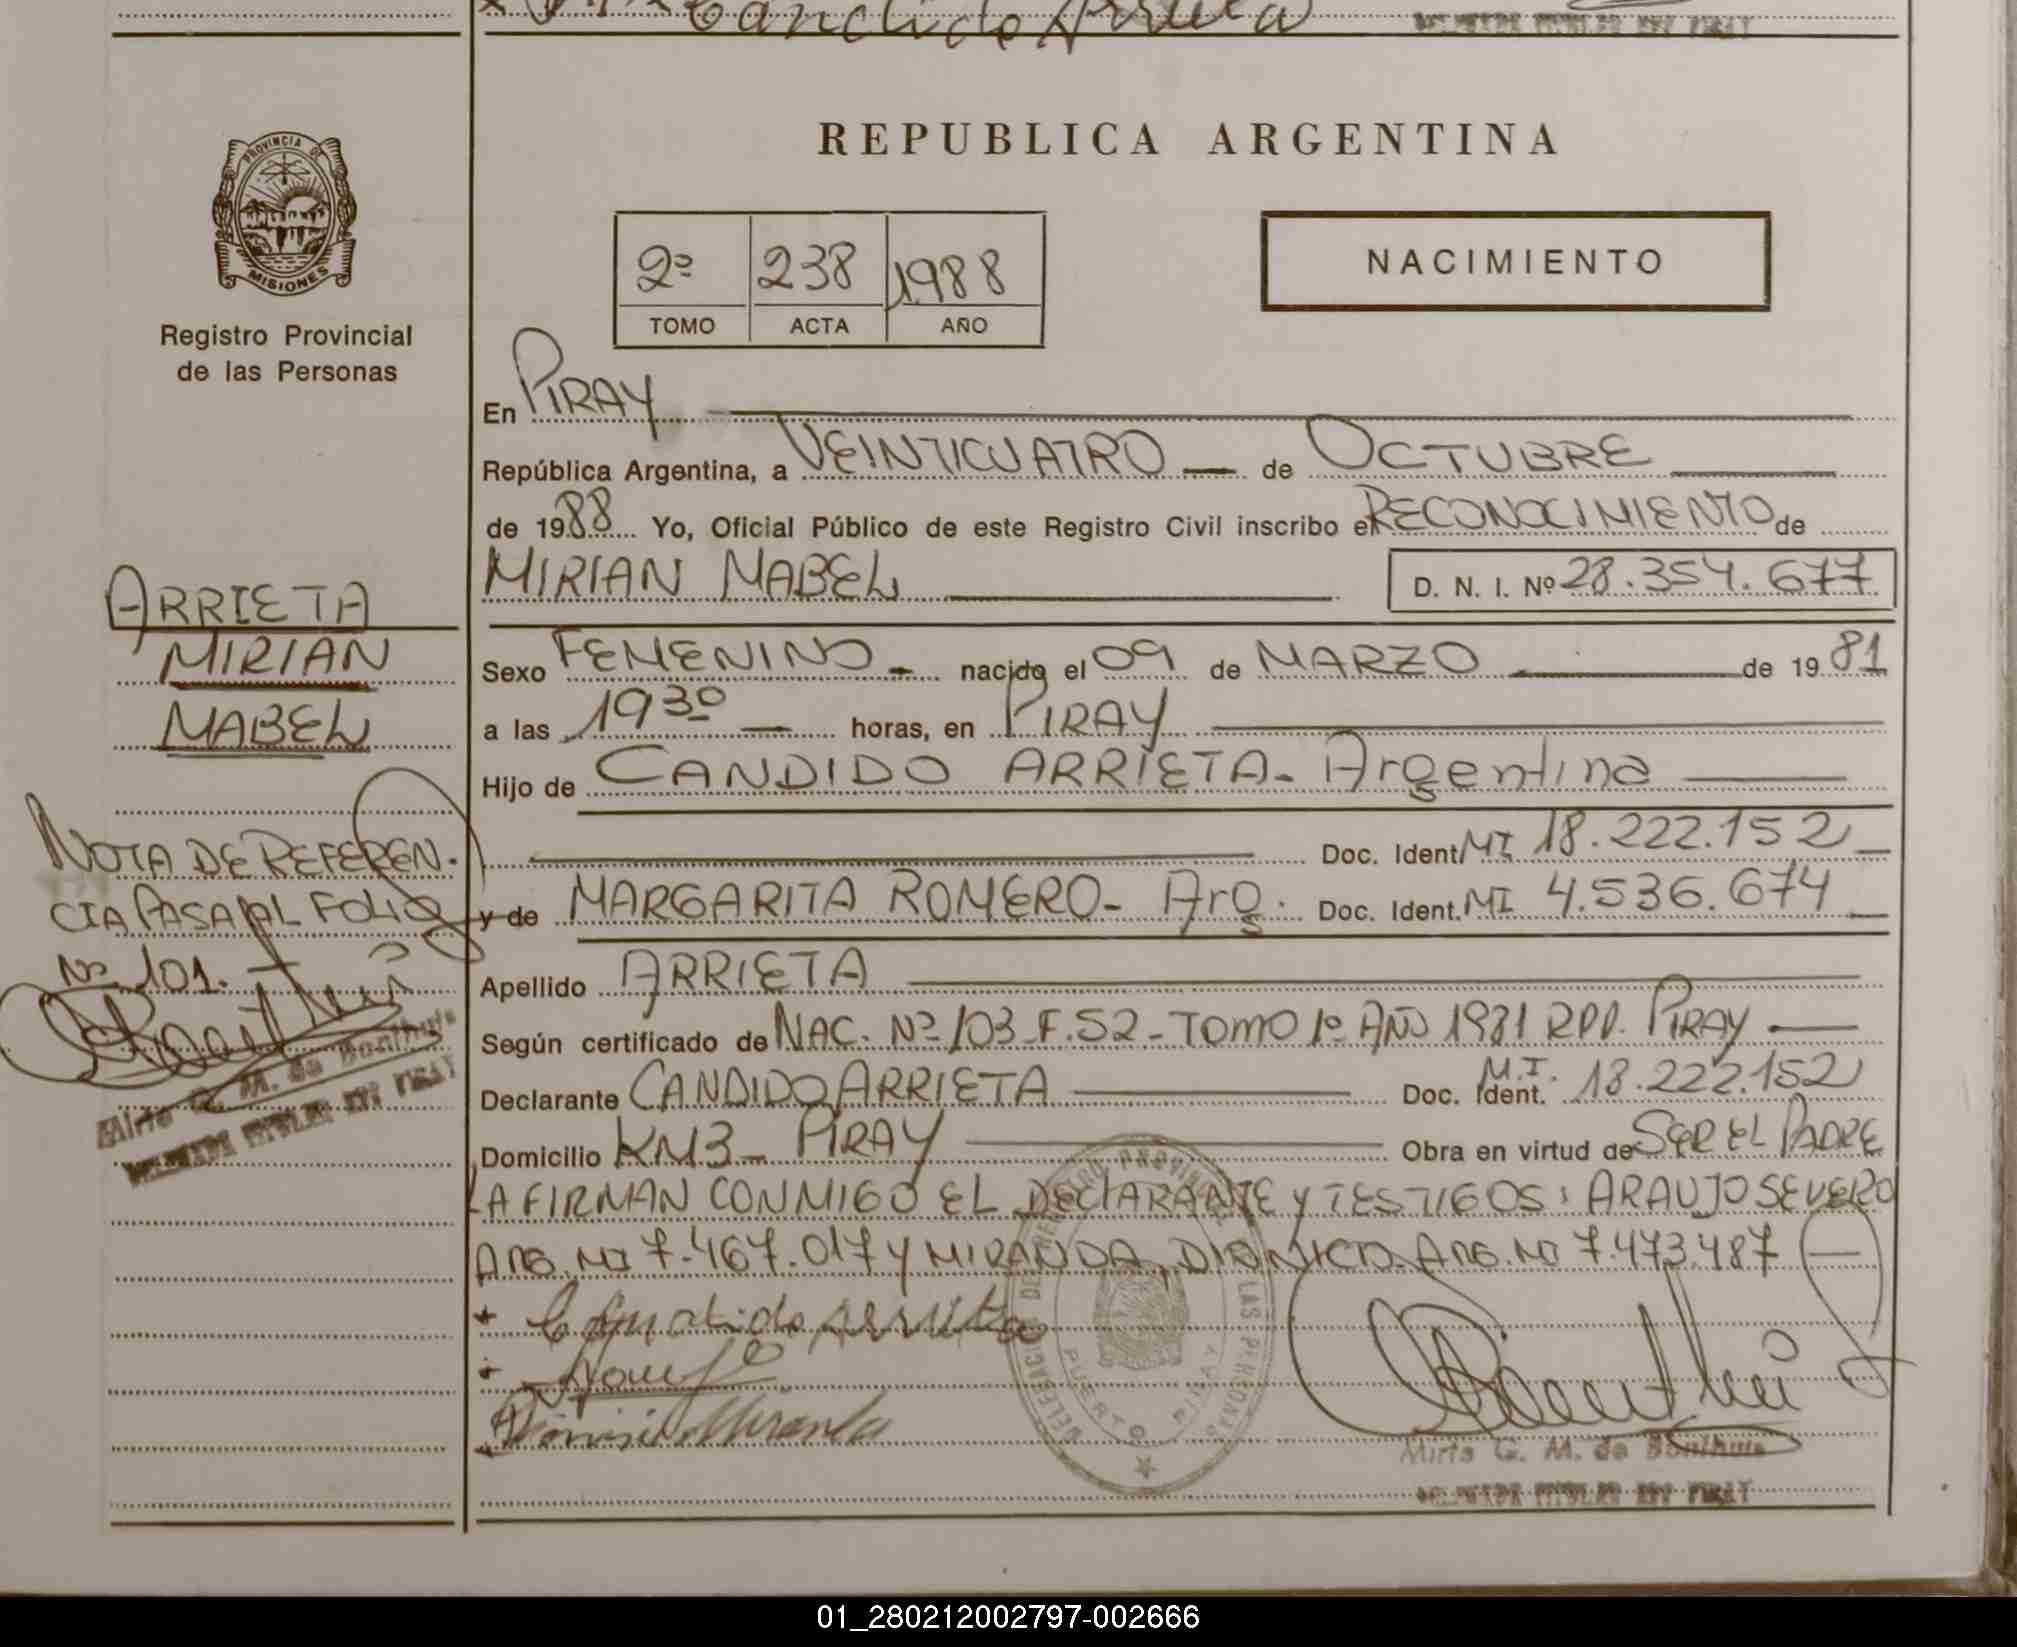 Candido Arrieta
PROVINCIA DE
MISIONES
Registro Provincial
de las Personas
REPUBLICA ARGENTINA
2º 238 1988
TOMO ACTA AÑO
NACIMIENTO
En PIRAY
República Argentina, a VEINTICUATRO de OCTUBRE
de 1988 Yo, Oficial Público de este Registro Civil inscribo el RECONOCIMIENTO de
MIRIAN MABEL D. N. I. Nº 28.354.677
Sexo FEMENINO - nacido el 09 de MARZO de 1981
a las 19 30 horas, en PIRAY
Hijo de CANDIDO ARRIETA- Argentina
Doc. Ident. MI 18.222.152
y de MARGARITA ROMERO- Arg. Doc. Ident. MI 4.536.674
Apellido ARRIETA
Según certificado de NAC. Nº 103 F.52 - TOMO 1º AÑO 1981 RPP. PIRAY
Declarante CANDIDO ARRIETA Doc. Ident. M.I. 18.222.152
Domicilio KM3- PIRAY Obra en virtud de SER EL PADRE
LA FIRMAN CONMIGO EL DECLARANTE Y TESTIGOS: ARAUJO SEVERO
ARG. MI 7.467.017 Y MIRANDA, DIONICIO. ARG. MI 7.473.487
+ Candido Arrieta
+
Dionisio Miranda
Mirta G. M. de Bonthuis
ARRIETA
MIRIAN
MABEL
NOTA DE REFEREN-
CIA PASA AL FOLIO
Nº 101.
Mirta G. M. de Bonthuis
DELEGACION DEL REGISTRO PROVINCIAL DE LAS PERSONAS
PUERTO PIRAY
01_280212002797-002666